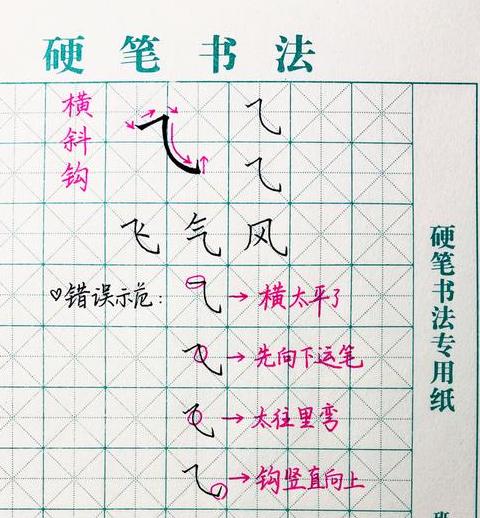 硬笔书法
横斜钩
飞气风
♡错误示范：
→横太平了
→先向下运笔
→太往里弯
→钩竖直向上
硬笔书法专用纸
班